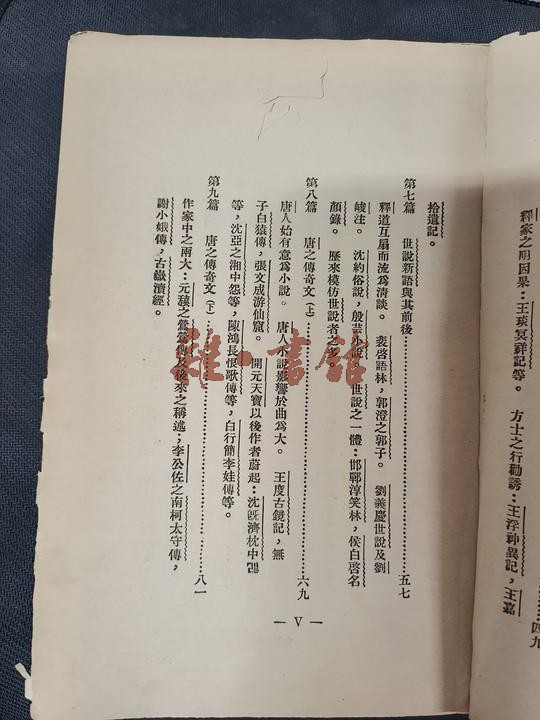 釋家之明因果：王琰冥祥記等。　方士之行勸誘：王浮神異記，王嘉
四九
拾遺記。
第七篇　世說新語與其前後……五七
釋道互扇而流爲清談。　裴啓語林，郭澄之郭子。　劉義慶世說及劉
峻注。　沈約俗說，殷芸小說　世說之一體：邯鄲淳笑林，侯白啓
顏錄。　歷來模仿世說者之多。
第八篇　唐之傳奇文（上）……六九
唐人始有意爲小說。　唐人小說影響於曲爲大。　王度古鏡記，無
名子白猿傳，張文成游仙窟。　開元天寶以後作者蔚起：沈旣濟枕中記
等，沈亞之湘中怨等，陳鴻長恨歌傳等，白行簡李娃傳等。
第九篇　唐之傳奇文（下）……八一
作家中之兩大：元稹之鶯鶯傳及後來之稱述；李公佐之南柯太守傳，
謝小娥傳，古嶽瀆經。
— V —
雄一書館